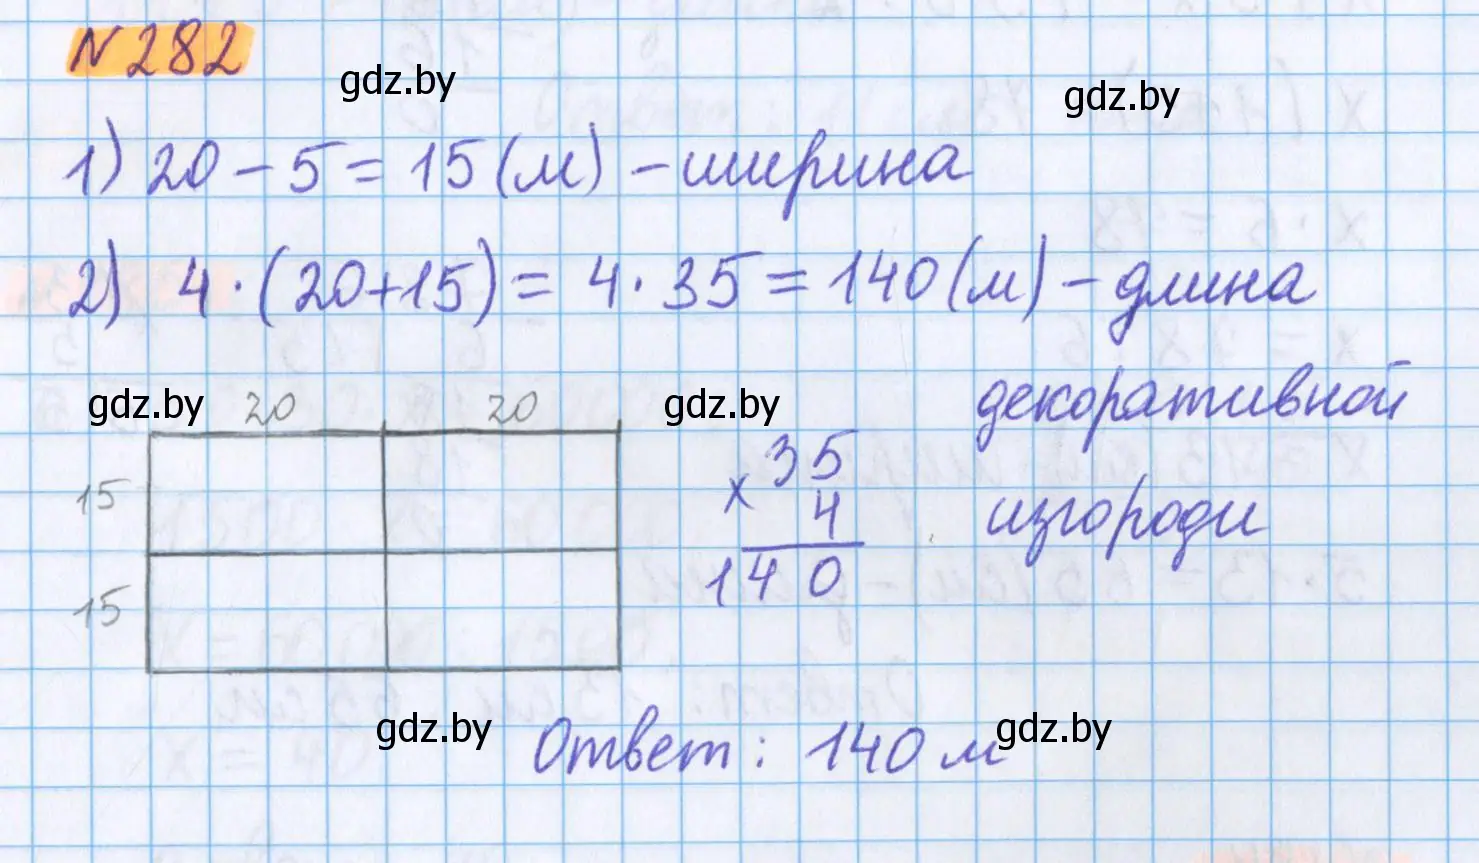 N 282
gdz.by
gdz.by
1) 20 - 5 = 15 (м) - ширина
2) 4 · (20+15) = 4 · 35 = 140 (м) - длина
декоративной
изгороди
gdz.by
20
20
gdz.by
15
15
x 35
4
140
gdz.by
Ответ: 140 м
gdz.by